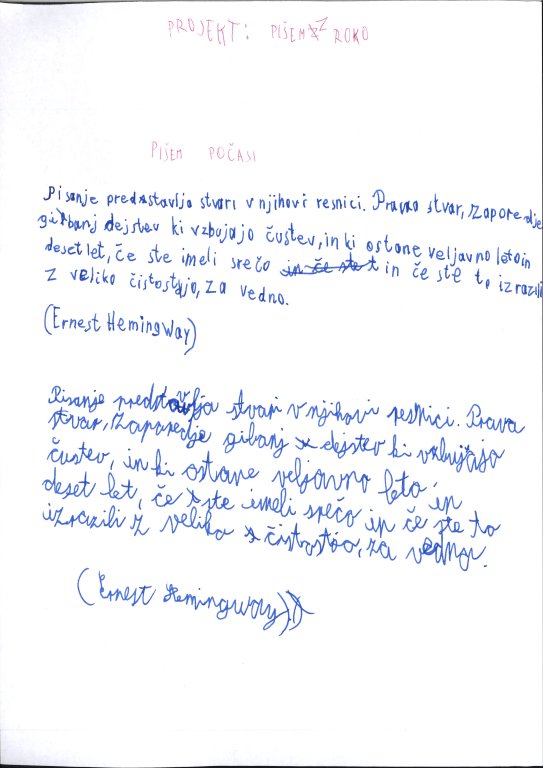 PROJEKT: PIŠEM Z ROKO
PIŠEM POČASI
Pisanje predstavlja stvari v njihovi resnici. Prava stvar, zaporedje
gibanj dejstev ki vzbujajo čustev, in ki ostane veljavno leto in
deset let, če ste imeli srečo in če ste t in če ste to izrazili
z veliko čistostjo, za vedno.
(Ernest Hemingway)
Pisanje predstavlja stvari v njihovi resnici. Prava
stvar, zaporedje gibanj dejstev ki vzbujajo
čustev, in ki ostane veljavno leto in
deset let, če ste imeli srečo in če ste to
izrazili z veliko čistostjo, za vedno.
(Ernest Hemingway)